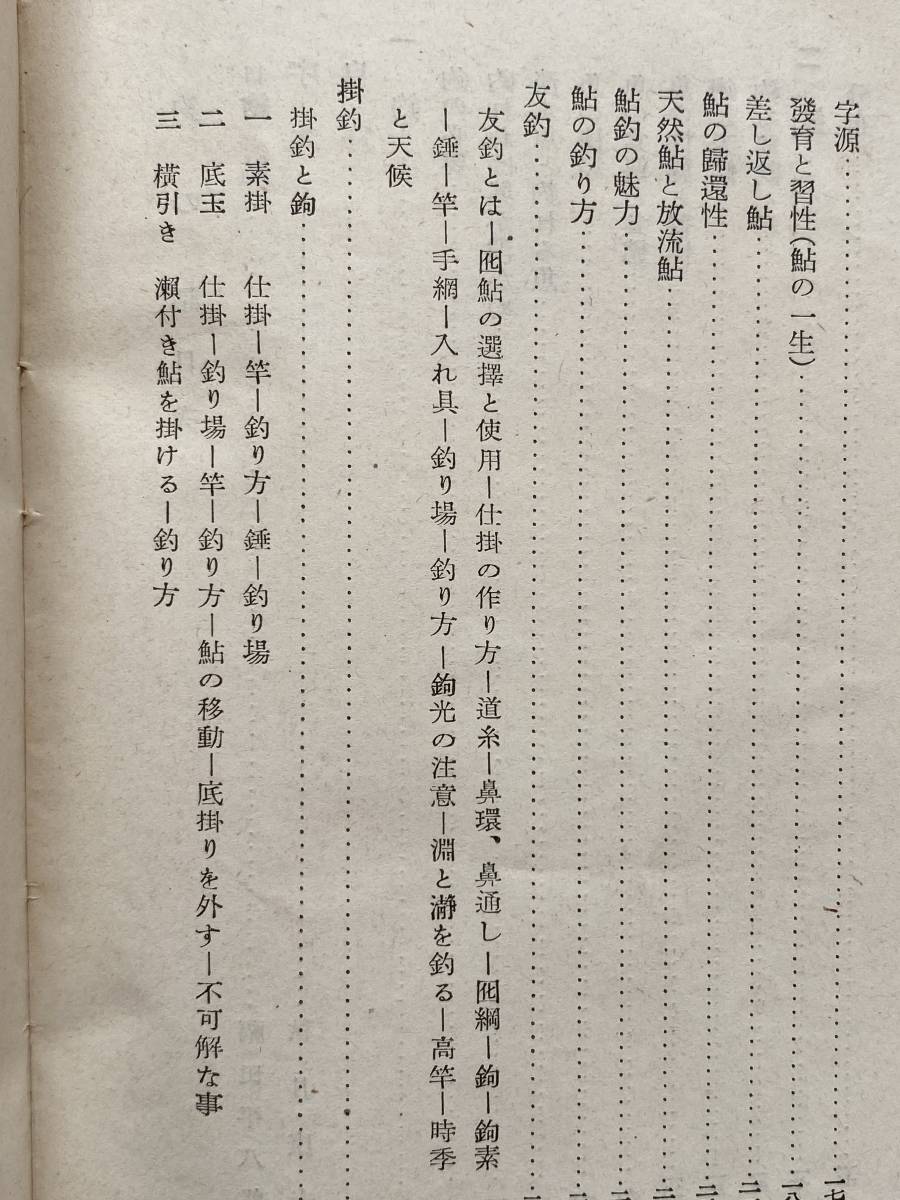 字源……………………一七
發育と習性(鮎の一生)……………………一八
差し返し鮎……………………二
鮎の歸還性……………………二
天然鮎と放流鮎……………………二
鮎釣の魅力……………………二
鮎の釣り方……………………二
友釣……………………二
友釣とは―囮鮎の選擇と使用―仕掛の作り方―道糸―鼻環、鼻通し―囮綱―鉤―鉤素
―錘―竿―手網―入れ具―釣り場―釣り方―鉤光の注意―淵と瀞を釣る―高竿―時季
と天候
掛釣……………………
掛釣と鉤……………………
一　素掛　仕掛―竿―釣り方―錘―釣り場
二　底玉　仕掛―釣り場―竿―釣り方―鮎の移動―底掛りを外す―不可解な事
三　橫引き　瀨付き鮎を掛ける―釣り方